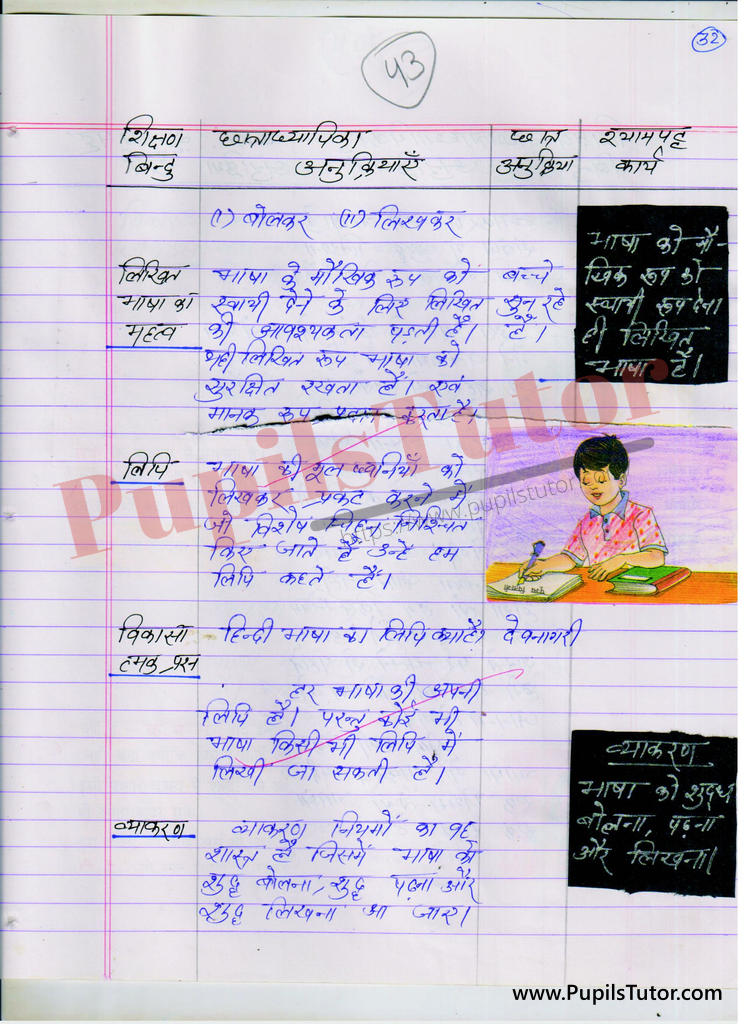 32
43
शिक्षण छात्राध्यापिका छात्र श्यामपट्ट
बिन्दु अनुक्रियाएँ अनुक्रिया कार्य
(i) बोलकर (ii) लिखकर
लिखित भाषा के मौखिक रूप को बच्चे
भाषा का स्थायी देने के लिए लिखित सुन रहे
महत्व की आवश्यकता पड़ती है। हैं।
यही लिखित रूप भाषा को
सुरक्षित रखता है। एवं
मानक रूप प्रदान करता है।
भाषा को मौ-
खिक रूप को
स्थायी रूप देना
ही लिखित
भाषा है।
लिपि भाषा की मूल ध्वनियों को
लिखकर प्रकट करने में
जो विशेष चिह्न निश्चित
किए जाते हैं उन्हें हम
लिपि कहते हैं।
विकासा हिन्दी भाषा की लिपि क्या है? देवनागरी
त्मक प्रश्न
हर भाषा की अपनी
लिपि है। परन्तु कोई भी
भाषा किसी भी लिपि में
लिखी जा सकती है।
व्याकरण व्याकरण नियमों का वह
शास्त्र है जिसमें भाषा को
शुद्ध बोलना, शुद्ध पढ़ना और
शुद्ध लिखना आ जाए।
व्याकरण
भाषा को शुद्ध
बोलना, पढ़ना
और लिखना।
PupilsTutor
https://www.pupilstutor
www.PupilsTutor.com